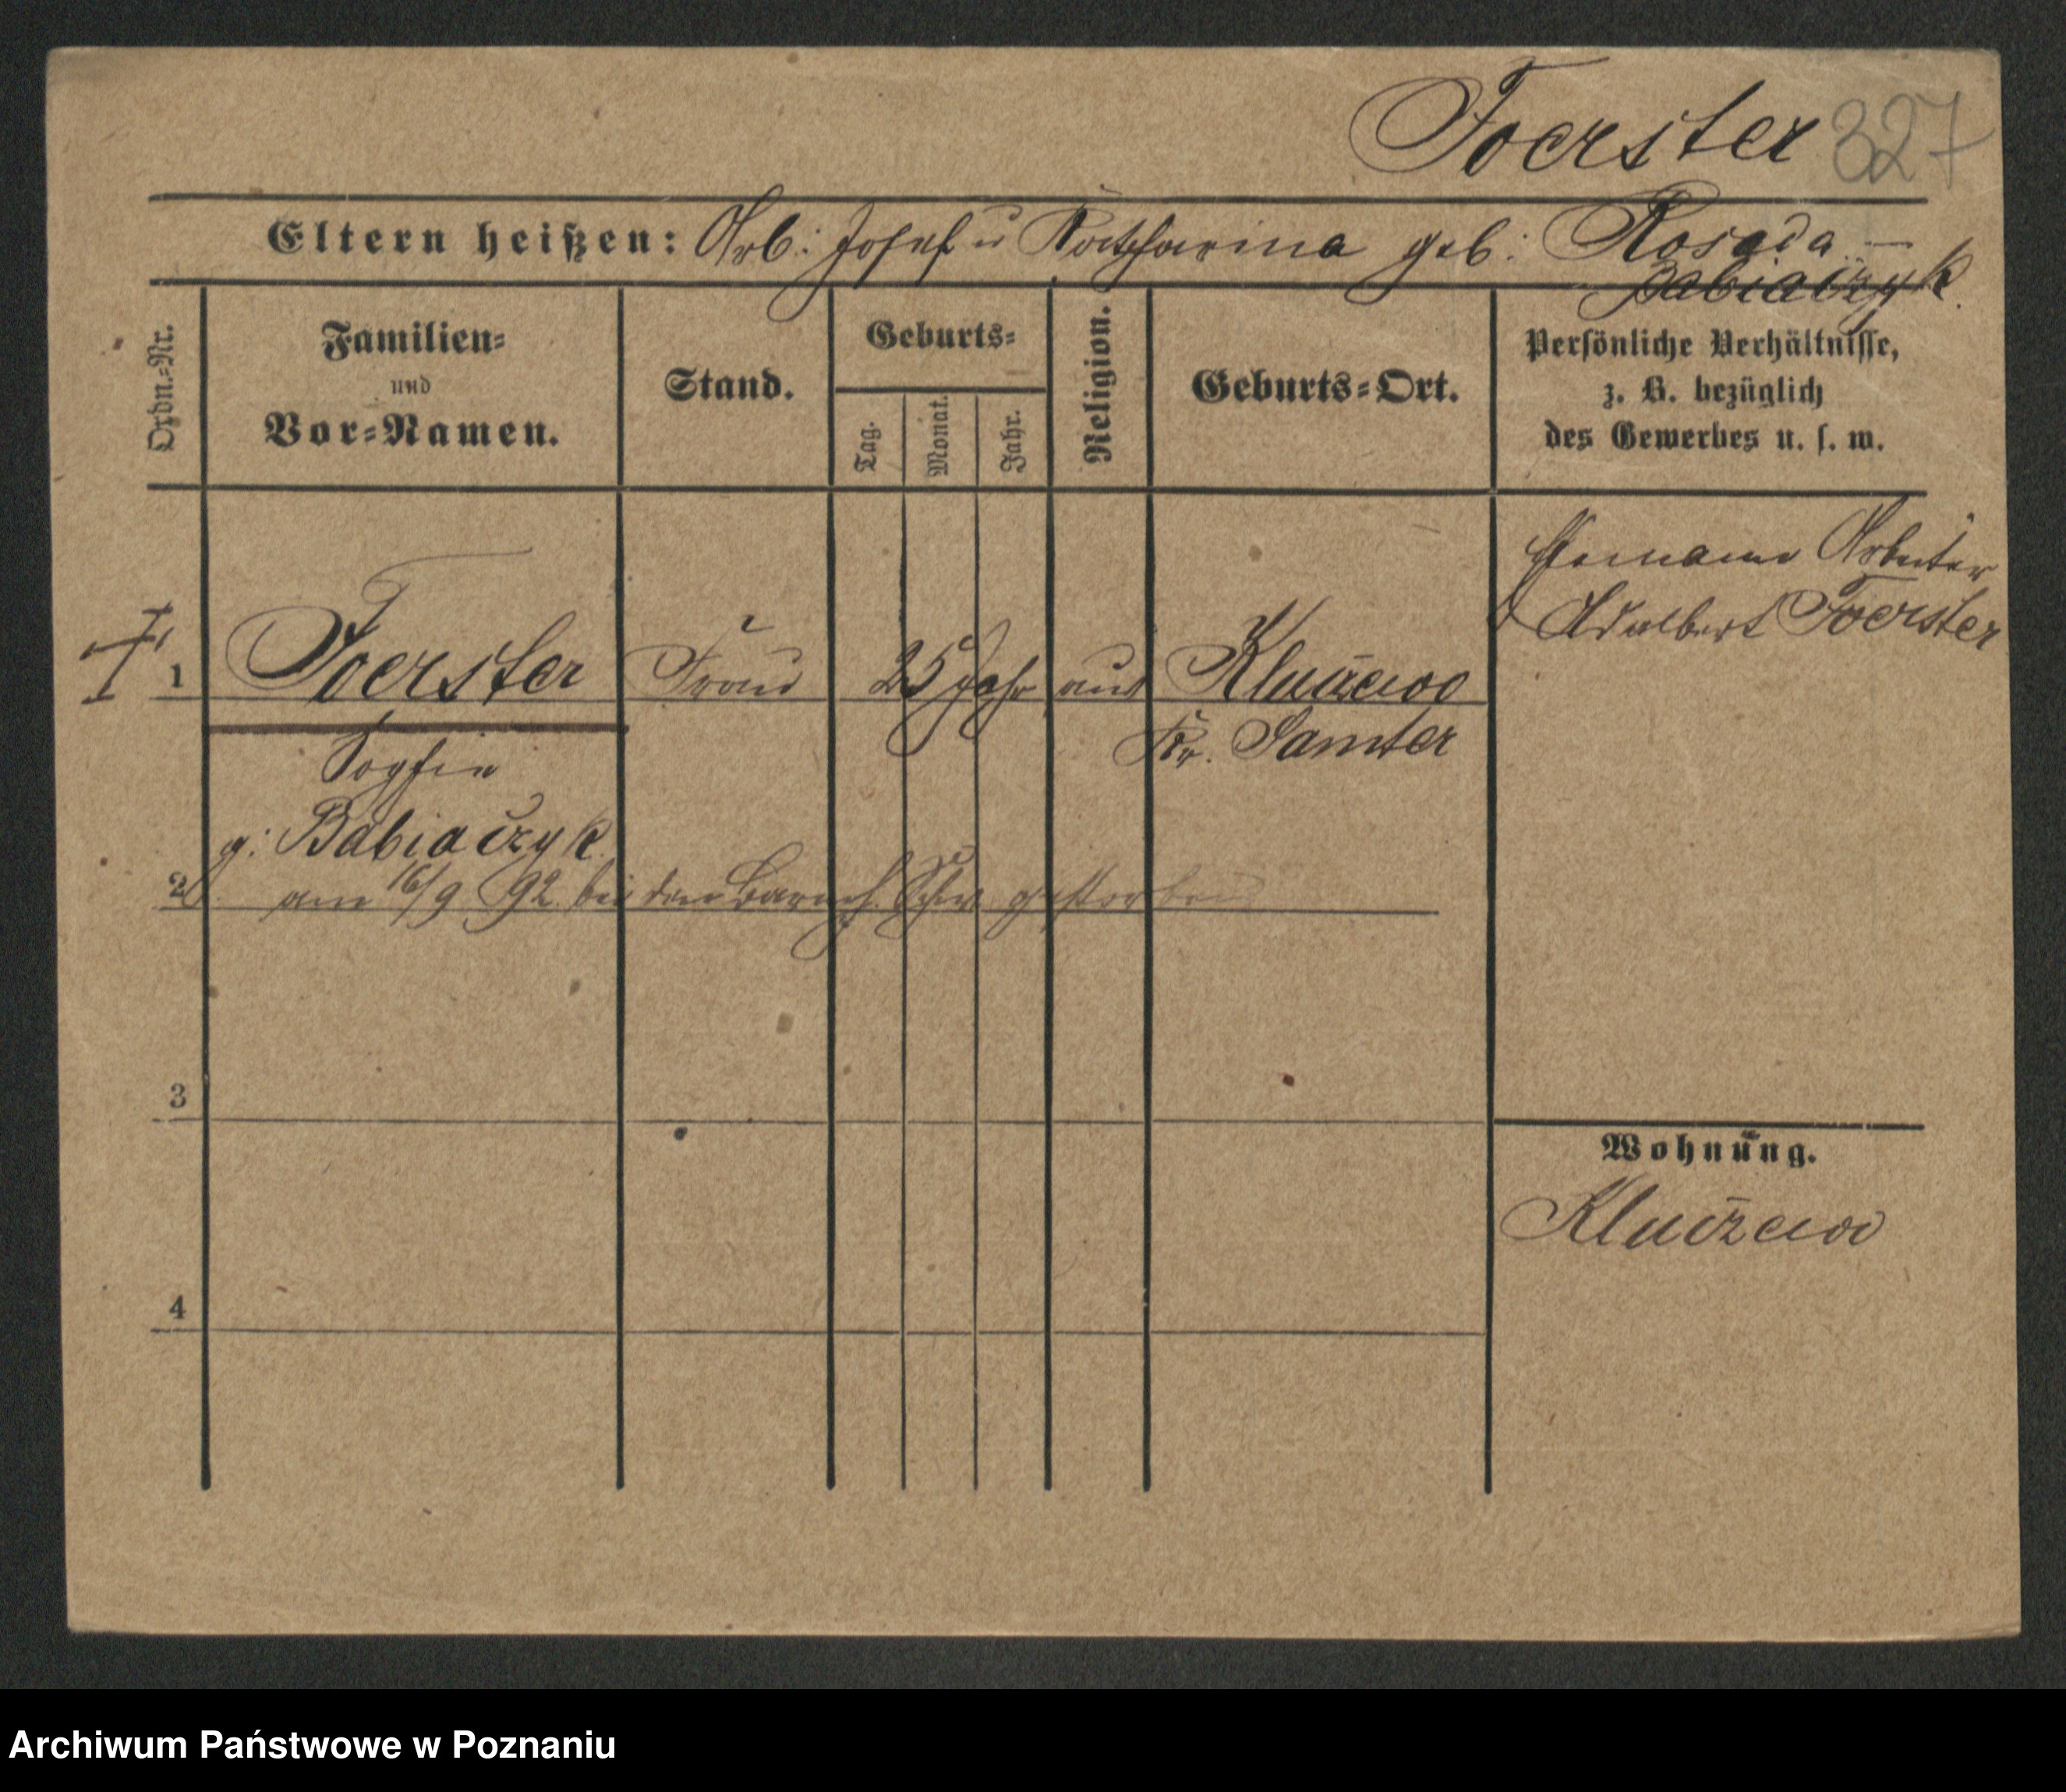 Foerster 327
Eltern heißen: Arb: Josef u Katharina geb: Rosada –
Babiaczyk.
Ordn.-Nr.
Familien-
und
Vor-Namen.
Stand.
Geburts-
Tag.
Monat.
Jahr.
Religion.
Geburts-Ort.
Persönliche Verhältnisse,
z. B. bezüglich
des Gewerbes u. s. w.
Ehemann Arbeiter
Adalbert Foerster
1 Foerster Frau 25 Jahr aus Kluczewo
Kr. Samter
Sophie
g: Babiaczyk
2 am 16/9 92 bei den barmh. Schw gestorben
3
Wohnung.
Kluczewo
4
Archiwum Państwowe w Poznaniu